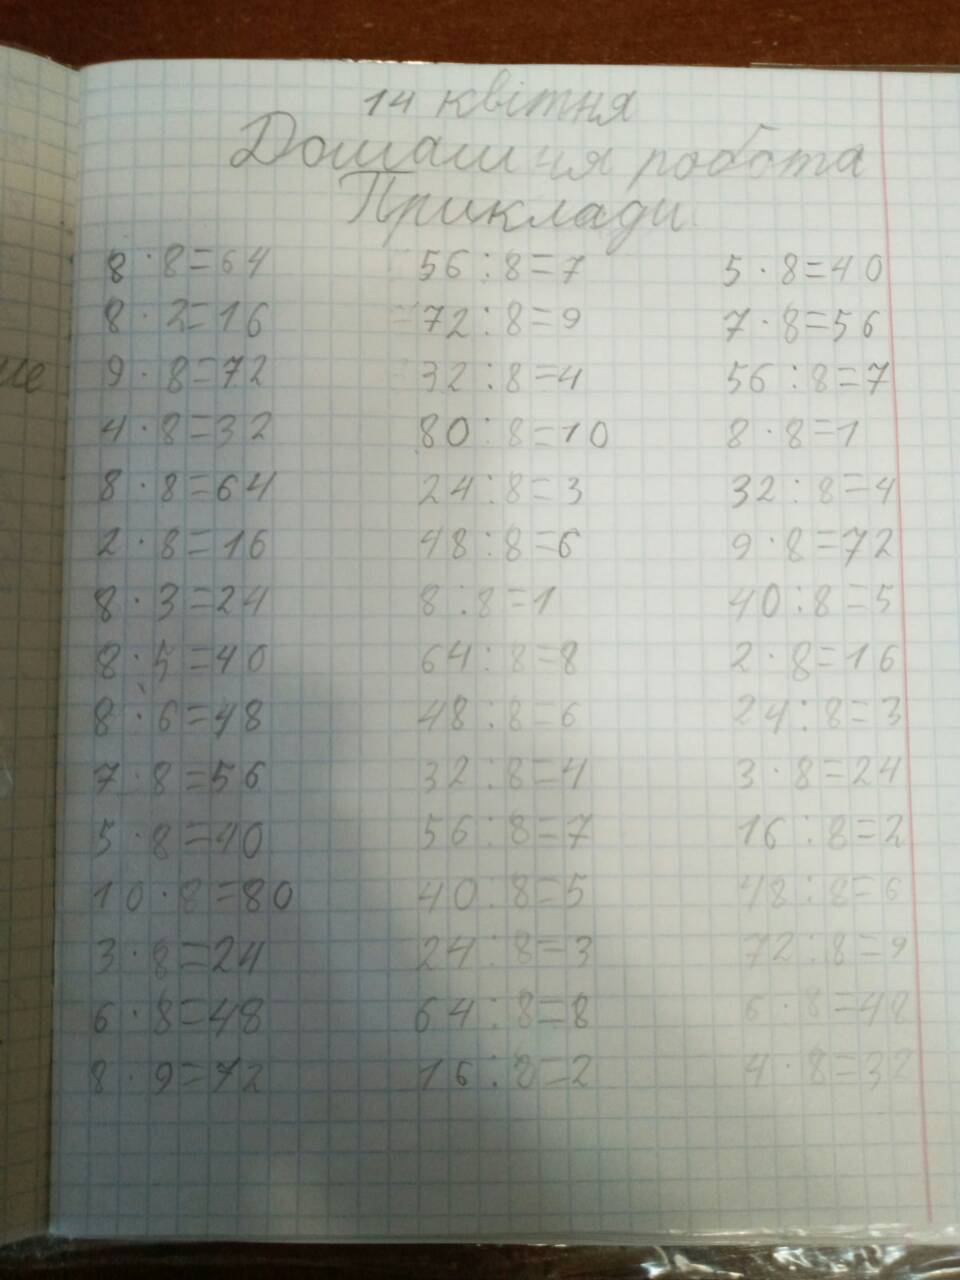 14 квітня
Домашня робота
Приклади
8 · 8 = 64
8 · 2 = 16
9 · 8 = 72
4 · 8 = 32
8 · 8 = 64
2 · 8 = 16
8 · 3 = 24
8 · 5 = 40
8 · 6 = 48
7 · 8 = 56
5 · 8 = 40
10 · 8 = 80
3 · 8 = 24
6 · 8 = 48
8 · 9 = 72
56 : 8 = 7
72 : 8 = 9
32 : 8 = 4
80 : 8 = 10
24 : 8 = 3
48 : 8 = 6
8 : 8 = 1
64 : 8 = 8
48 : 8 = 6
32 : 8 = 4
56 : 8 = 7
40 : 8 = 5
24 : 8 = 3
64 : 8 = 8
16 : 8 = 2
5 · 8 = 40
7 · 8 = 56
56 : 8 = 7
8 · 8 = 1
32 : 8 = 4
9 · 8 = 72
40 : 8 = 5
2 · 8 = 16
24 : 8 = 3
3 · 8 = 24
16 : 8 = 2
48 : 8 = 6
72 : 8 = 9
6 · 8 = 48
4 · 8 = 32